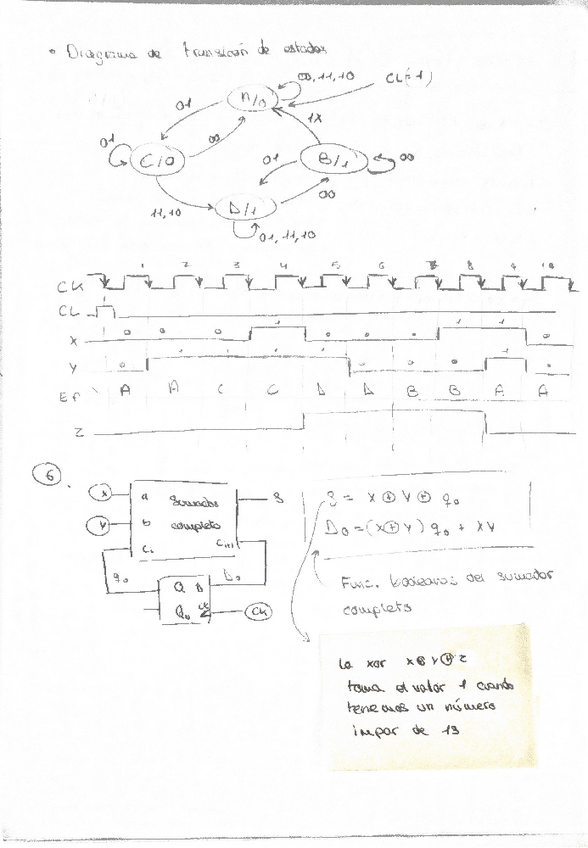 • Diagrama de transición de estados
00,11,10
CL=1
A/0
01
1X
01
00
C/0
01
B/1
00
D/1
00
11,10
01,11,10
1 2 3 4 5 6 7 8 9 10
CK
CL
1 1 1
X 0 0 0 0 0 0 0
1 1 1 1 1
Y 0 0 0 0 0
Ef A A C C D D B B A A
Z
6.
X a Sumador S
Y b completo
Ci Ci+1
q0 Q D D0
CK
S = X ⊕ Y ⊕ q0
D0 = (X⊕Y) q0 + XY
Func. booleanas del sumador
completo
La xor X⊕Y⊕Z
toma el valor 1 cuando
tenemos un número
impar de 1s